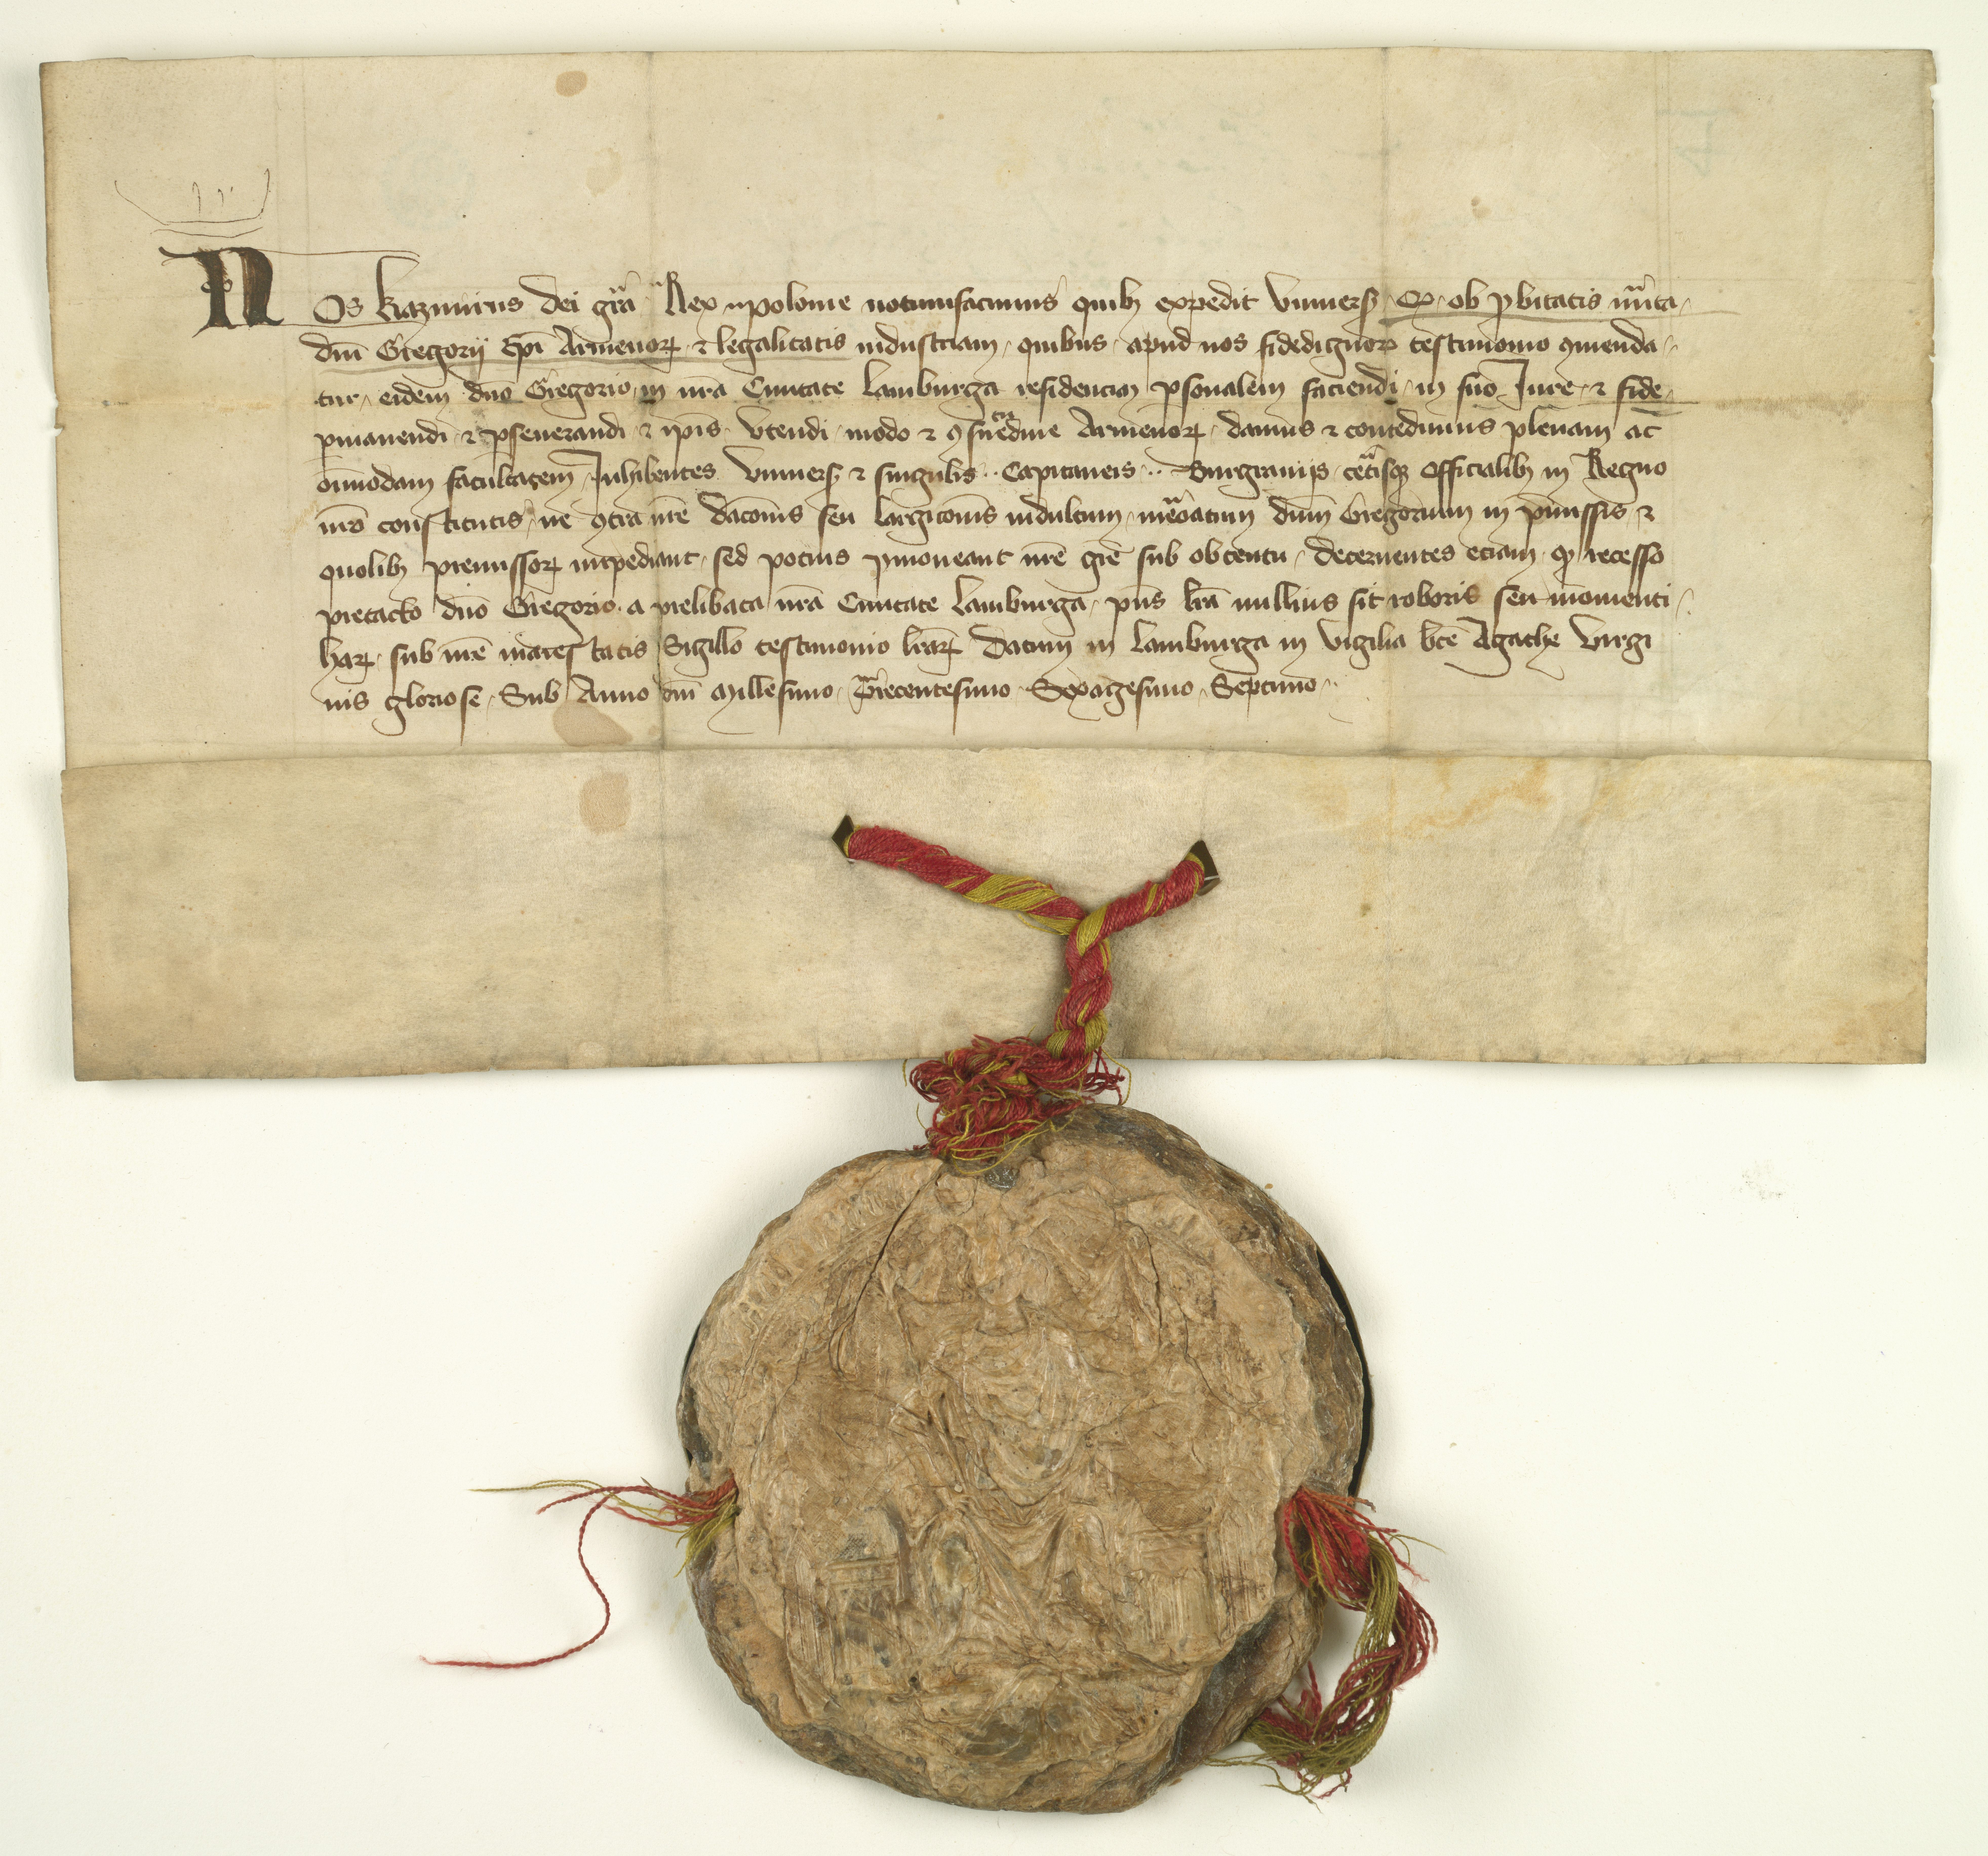 Nos Kazimirus dei gr̄a Rex Polonie notumfacimus quibꝫ expedit Vniuersꝭ Qꝫ ob ꝓbitatis mͬita
dn̄i Gregorij Ep̄i Armenoꝝ ⁊ legalitatis industriam quibus apud nos fidedignoꝝ testimonio ꝯmenda
tur eidem dn̄o Gregorio in nr̄a Ciuitate Lamburga residenciam ꝑsonalem faciendi in suo Jure ⁊ fide
ꝑmanendi ⁊ ꝑseuerandi ⁊ ip̄is Vtendi modo ⁊ ꝯsuetudine Armenoꝝ damus ⁊ concedimus plenam ac
oīmodam facultatem Inhibentes Vniuersꝭ ⁊ singulis Capitaneis Burgrauijs cet̓isqꝫ Officialibꝫ in Regno
nr̄o constitutis ne ꝯtra nr̄e dac̄onis seu largic̄onis indultum mem̓atum dn̄m Gregorium in p̄missis ⁊
quolibꝫ premissoꝝ inpediant sed pocius ꝓmoueant nr̄e gr̄e sub obtentu decernentes eciam qꝫ recesso
pretacto dn̄o Gregorio a prelibata nr̄a Ciuitate Lamburga p̄ns lr̄a nullius sit roboris seu momenti
haꝝ sub nr̄e maiestatis Sigillo testimonio lr̄aꝝ Datum in Lamburga in Vigilia bt̄e Agathe Virgi
nis gloriose Sub Anno dn̄i Millesimo Trecentesimo Sexagesimo Septimo